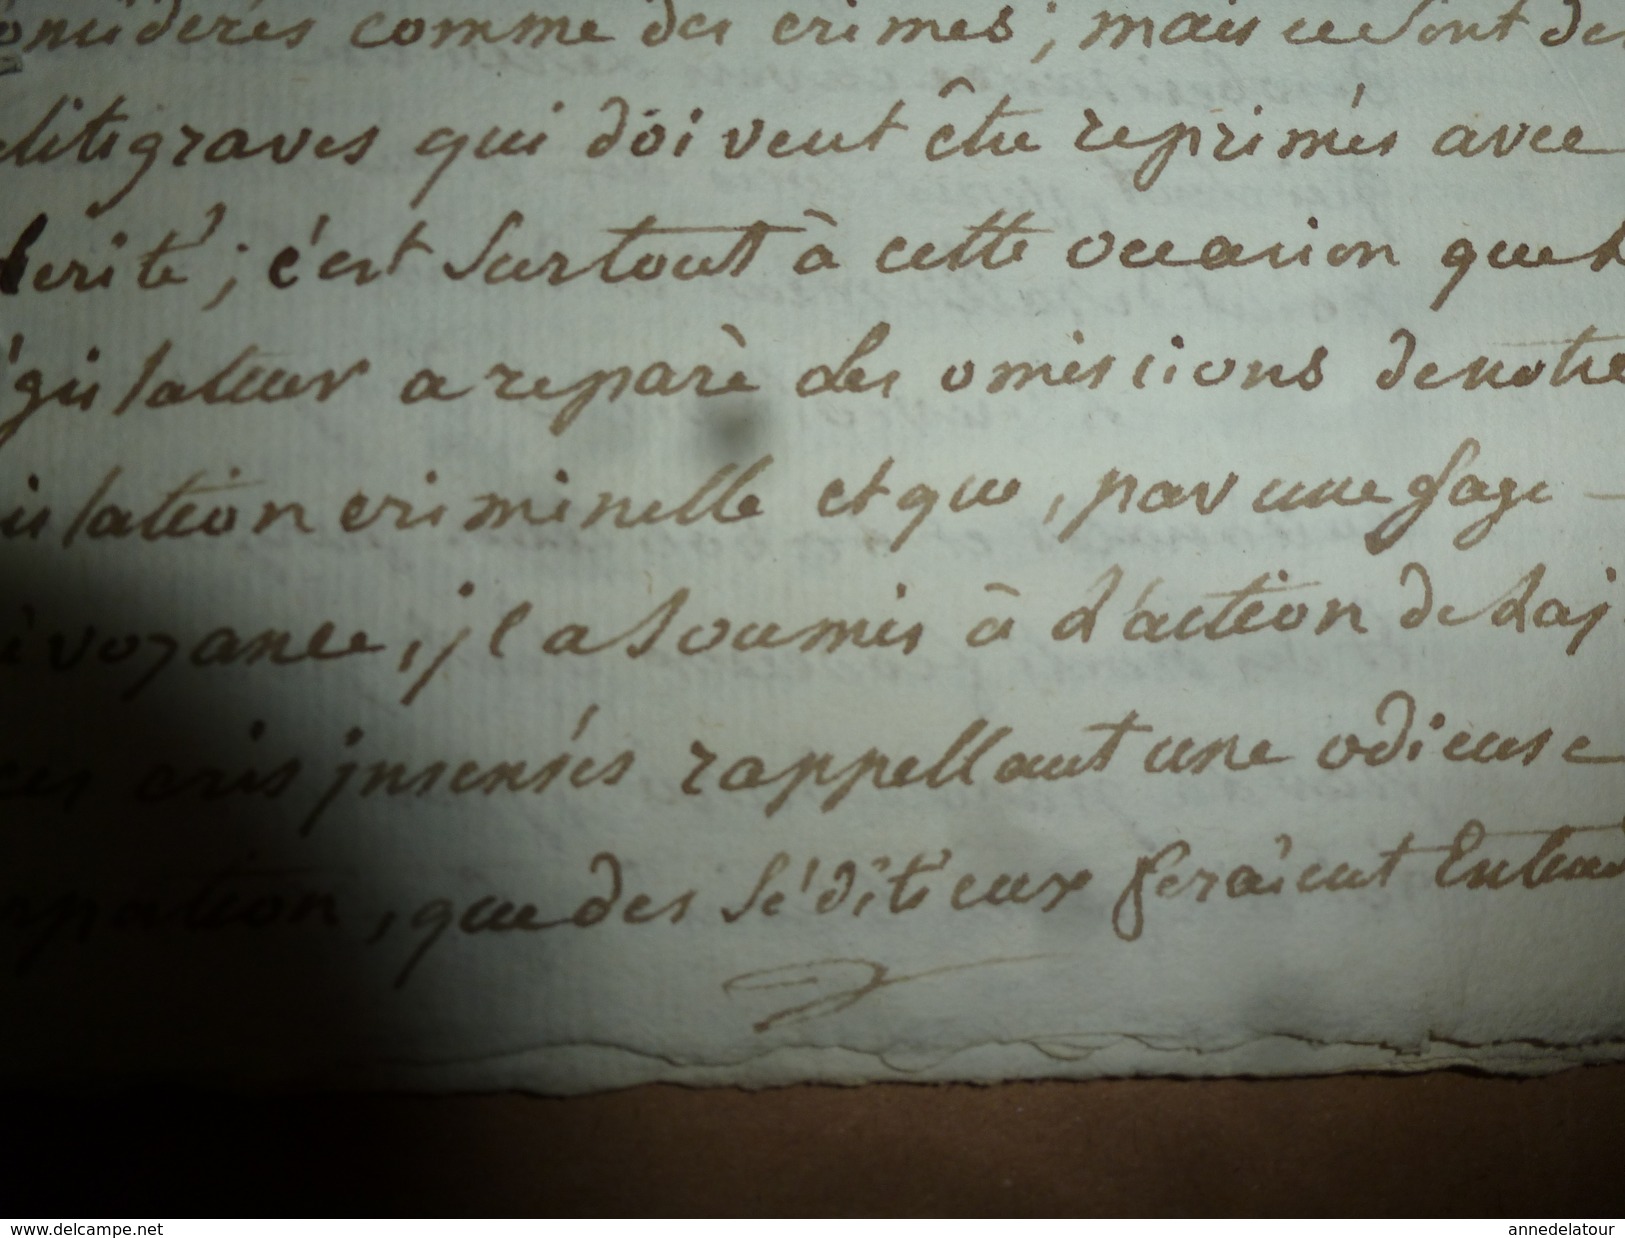 onsiderés comme des crimes; mais ce sont de
elits graves qui doivent être reprimés avec
verité; c'est surtout à cette occasion que l
égislateur a reparè les omissions de notre
islation criminelle et que, par une sage
évoyance, jl a soumis à l'action de la j
ces cris jnsensés rappellant une odieuse
rpation, que des séditieux feraient Entend
www.delcampe.net
annedelatour